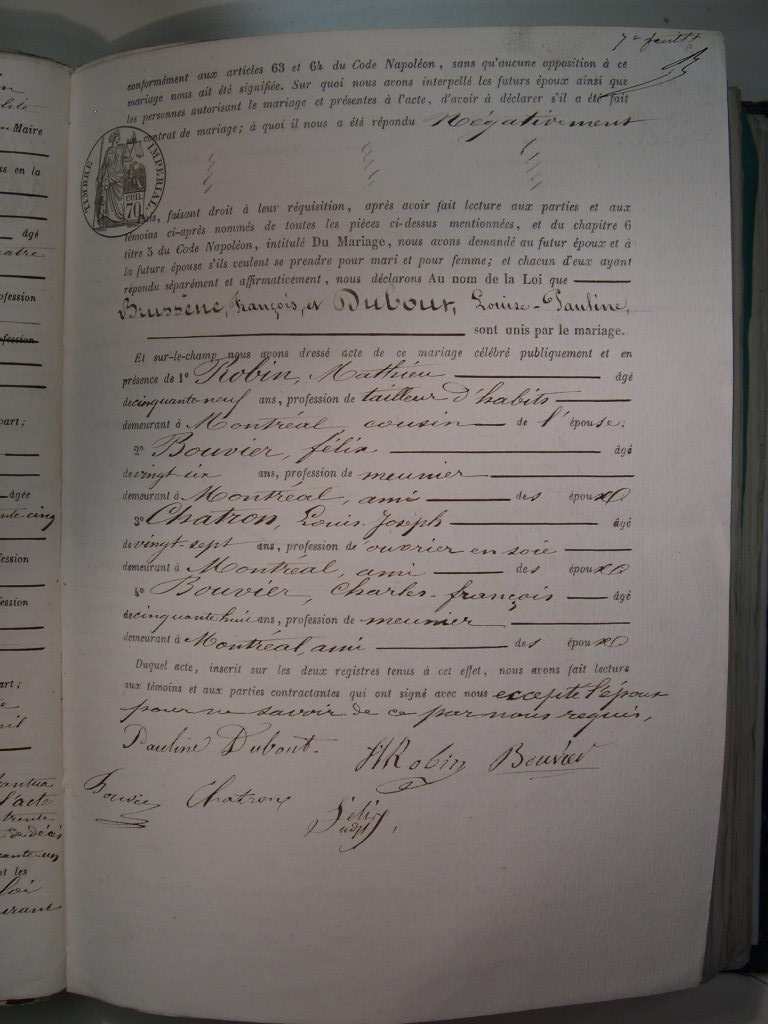 7e feuillet
conformément aux articles 63 et 64 du Code Napoléon, sans qu'aucune opposition à ce
mariage nous ait été signifiée. Sur quoi nous avons interpellé les futurs époux ainsi que
les personnes autorisant le mariage et présentes à l'acte, d'avoir à déclarer s'il a été fait
contrat de mariage; à quoi il nous a été répondu Négativement
TIMBRE IMPERIAL
70 CENT.
faisant droit à leur réquisition, après avoir fait lecture aux parties et aux
témoins ci-après nommés de toutes les pièces ci-dessus mentionnées, et du chapitre 6
titre 5 du Code Napoléon, intitulé Du Mariage, nous avons demandé au futur époux et à
la future épouse s'ils veulent se prendre pour mari et pour femme; et chacun d'eux ayant
répondu séparément et affirmativement, nous déclarons Au nom de la Loi que
Brussène, François, et Dubout, Louise-Pauline,
sont unis par le mariage.
Et sur-le-champ nous avons dressé acte de ce mariage célébré publiquement et en
présence de 1° Robin, Mathieu âgé
de cinquante-neuf ans, profession de tailleur d'habits
demeurant à Montréal, cousin de l'épouse.
2° Bouvier, félix âgé
de vingt six ans, profession de meunier
demeurant à Montréal, ami des époux
3° Chatron, Louis-Joseph âgé
de vingt-sept ans, profession de ouvrier en soie
demeurant à Montréal, ami des époux
4° Bouvier, Charles-françois âgé
de cinquante huit ans, profession de meunier
demeurant à Montréal ami des époux
Duquel acte, inscrit sur les deux registres tenus à cet effet, nous avons fait lecture
aux témoins et aux parties contractantes qui ont signé avec nous excepté l'époux
pour ne savoir de ce par nous requis,
Pauline Dubout. Robin Bouvier
Bouvier Chatron
Félix
adjt